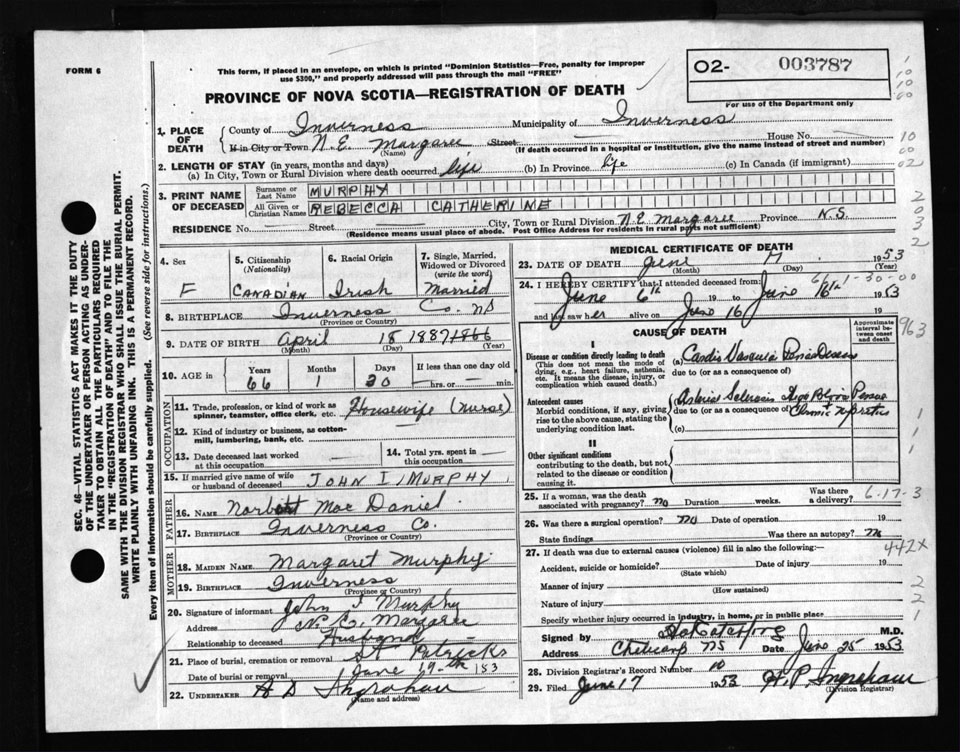 FORM 6
This form, if placed in an envelope, on which is printed "Dominion Statistics—Free, penalty for improper
use $300," and properly addressed will pass through the mail "FREE"
O2- 003787
For use of the Department only
PROVINCE OF NOVA SCOTIA—REGISTRATION OF DEATH
1. PLACE OF DEATH
County of Inverness Municipality of Inverness
If in City or Town N.E. Margaree Street House No.
(Name) (If death occurred in a hospital or institution, give the name instead of street and number)
2. LENGTH OF STAY (in years, months and days)
(a) In City, Town or Rural Division where death occurred life (b) In Province life (c) In Canada (if immigrant)
3. PRINT NAME OF DECEASED
Surname or Last Name MURPHY
All Given or Christian Names REBECCA CATHERINE
RESIDENCE No. Street City, Town or Rural Division N.E Margaree Province N.S.
(Residence means usual place of abode. Post Office Address for residents in rural parts not sufficient)
4. Sex F
5. Citizenship (Nationality) CANADIAN
6. Racial Origin Irish
7. Single, Married, Widowed or Divorced (write the word) Married
8. BIRTHPLACE Inverness Co. NS
(Province or Country)
9. DATE OF BIRTH April 18 1887 1866
(Month) (Day) (Year)
10. AGE in Years Months Days If less than one day old
66 1 30 hrs. or min.
OCCUPATION
11. Trade, profession, or kind of work as spinner, teamster, office clerk, etc. Housewife (Nurse)
12. Kind of industry or business, as cotton-mill, lumbering, bank, etc.
13. Date deceased last worked at this occupation
14. Total yrs. spent in this occupation
15. If married give name of wife or husband of deceased JOHN I. MURPHY
FATHER
16. NAME Norbert Mac Daniel
17. BIRTHPLACE Inverness Co.
(Province or Country)
MOTHER
18. MAIDEN NAME Margaret Murphy
19. BIRTHPLACE Inverness
(Province or Country)
20. Signature of informant John I Murphy
Address N.E. Margaree
Relationship to deceased Husband
21. Place of burial, cremation or removal St Patricks
Date of burial or removal June 19th 153
22. UNDERTAKER H D Ingraham
(Name and address)
MEDICAL CERTIFICATE OF DEATH
23. DATE OF DEATH June 17 1953
(Month) (Day) (Year)
24. I HEREBY CERTIFY that I attended deceased from:
June 6th 19 to June 16th 1953
and last saw her alive on June 16 19
CAUSE OF DEATH
Approximate interval between onset and death
I
Disease or condition directly leading to death
(This does not mean the mode of dying, e.g., heart failure, asthenia, etc. It means the disease, injury, or complication which caused death.)
(a)
due to (or as a consequence of)
Antecedent causes
Morbid conditions, if any, giving rise to the above cause, stating the underlying condition last.
(b)
due to (or as a consequence of)
(c)
II
Other significant conditions
contributing to the death, but not related to the disease or condition causing it.
25. If a woman, was the death associated with pregnancy? no Duration weeks. Was there a delivery?
26. Was there a surgical operation? no Date of operation 19
State findings Was there an autopsy? no
27. If death was due to external causes (violence) fill in also the following:
Accident, suicide or homicide? Date of injury 19
(State which)
Manner of injury
(How sustained)
Nature of injury
Specify whether injury occurred in industry, in home, or in public place
Signed by M.D.
Address Cheticamp NS Date June 25 1953
28. Division Registrar's Record Number 10
29. Filed June 17 1953 H.P. Ingraham
(Division Registrar)
6-17-3
442X
963
SEC. 46—VITAL STATISTICS ACT MAKES IT THE DUTY
OF THE UNDERTAKER OR PERSON ACTING AS UNDER-
TAKER TO OBTAIN ALL THE PARTICULARS REQUIRED
IN THE "REGISTRATION OF DEATH" AND TO FILE THE
SAME WITH THE DIVISION REGISTRAR WHO SHALL ISSUE THE BURIAL PERMIT.
WRITE PLAINLY WITH UNFADING INK. THIS IS A PERMANENT RECORD.
Every item of information should be carefully supplied. (See reverse side for instructions.)